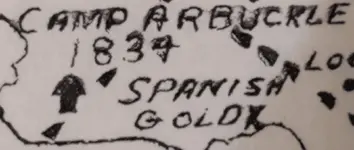 CAMP ARBUCKLE
1834
SPANISH
GOLD
LO